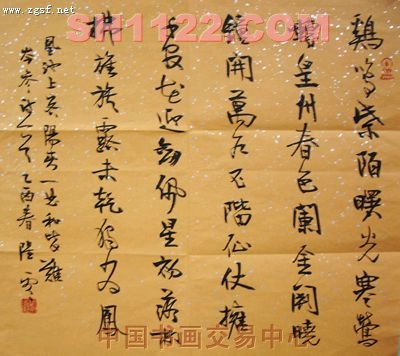 www.zgsf.net
SH1122.COM
鷄鸣紫陌曙光寒鶯
囀皇州春色闌金闕曉
鐘開萬户玉階仙仗擁
千官花迎劍佩星初落柳
拂旌旗露未乾獨有鳳
凰池上客陽春一曲和皆難
岑參詩一首 乙酉春
中国书画交易中心